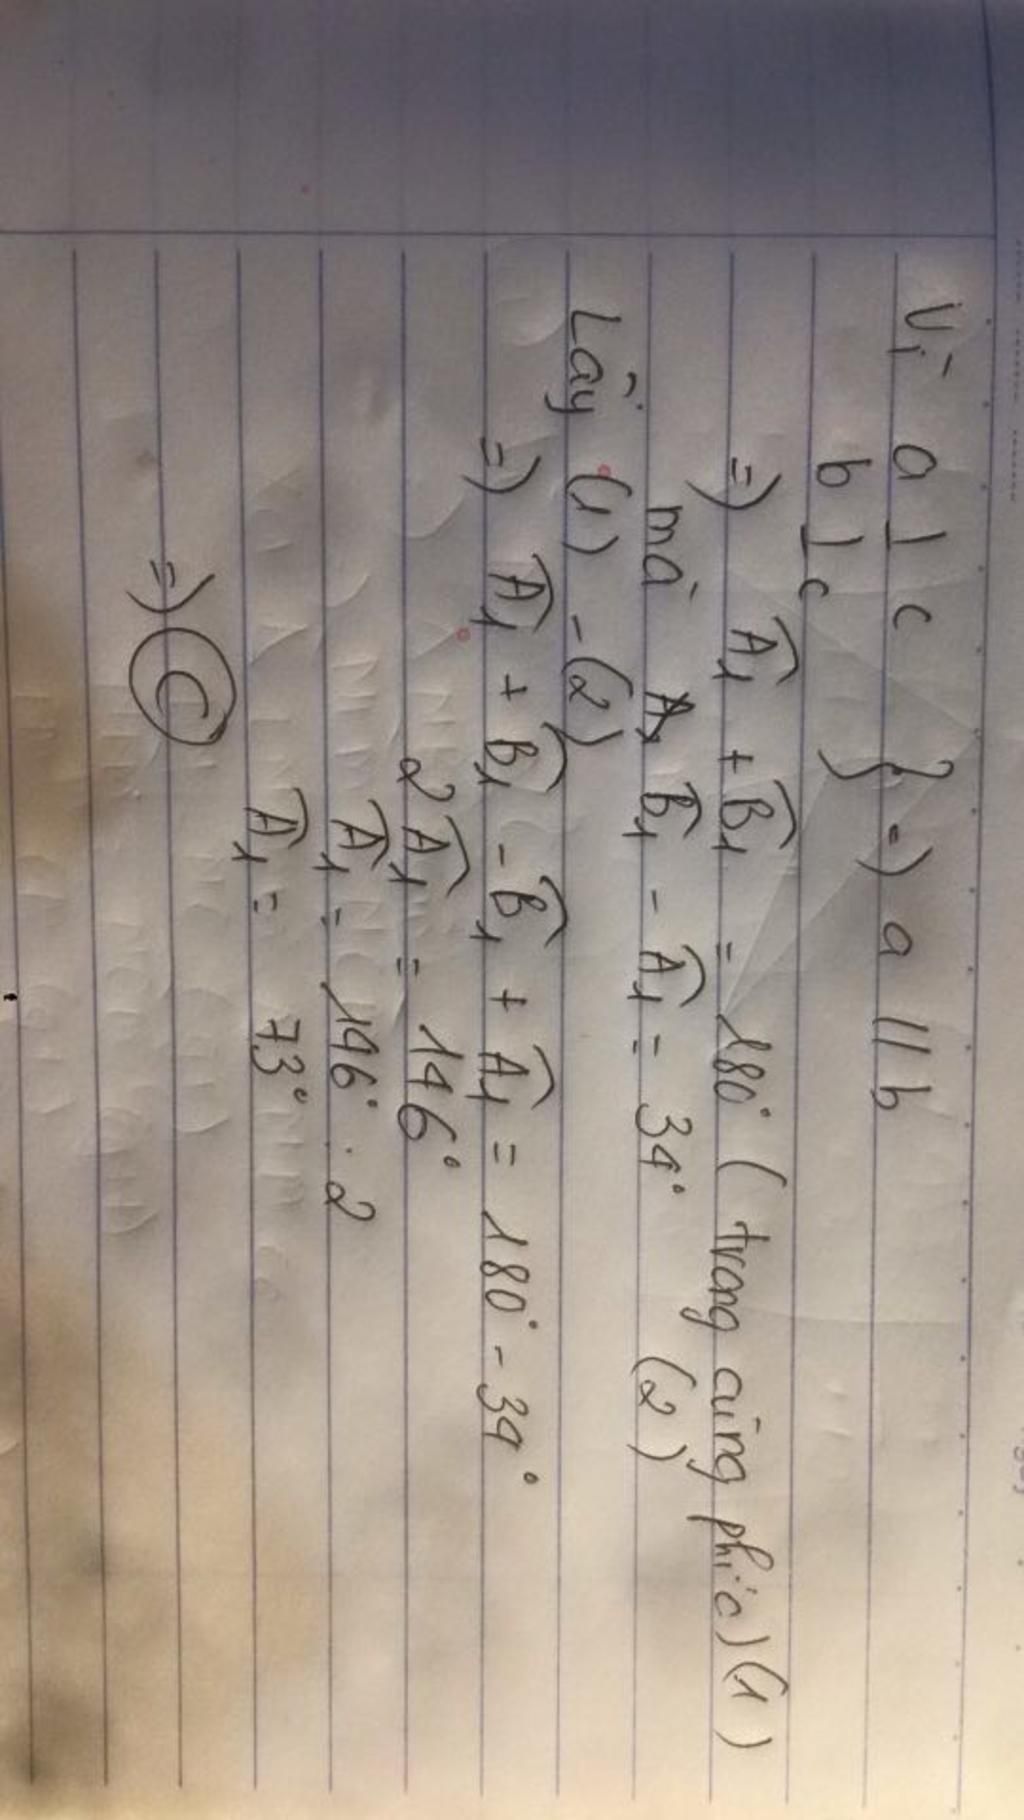 Vì a ⊥ c
b ⊥ c } =) a // b
=) Â1 + B̂1 = 180° (trong cùng phía) (1)
mà B̂1 - Â1 = 34° (2)
Lấy (1) - (2)
=) Â1 + B̂1 - B̂1 + Â1 = 180° - 34°
2Â1 = 146°
Â1 = 146° : 2
Â1 = 73°
=) C